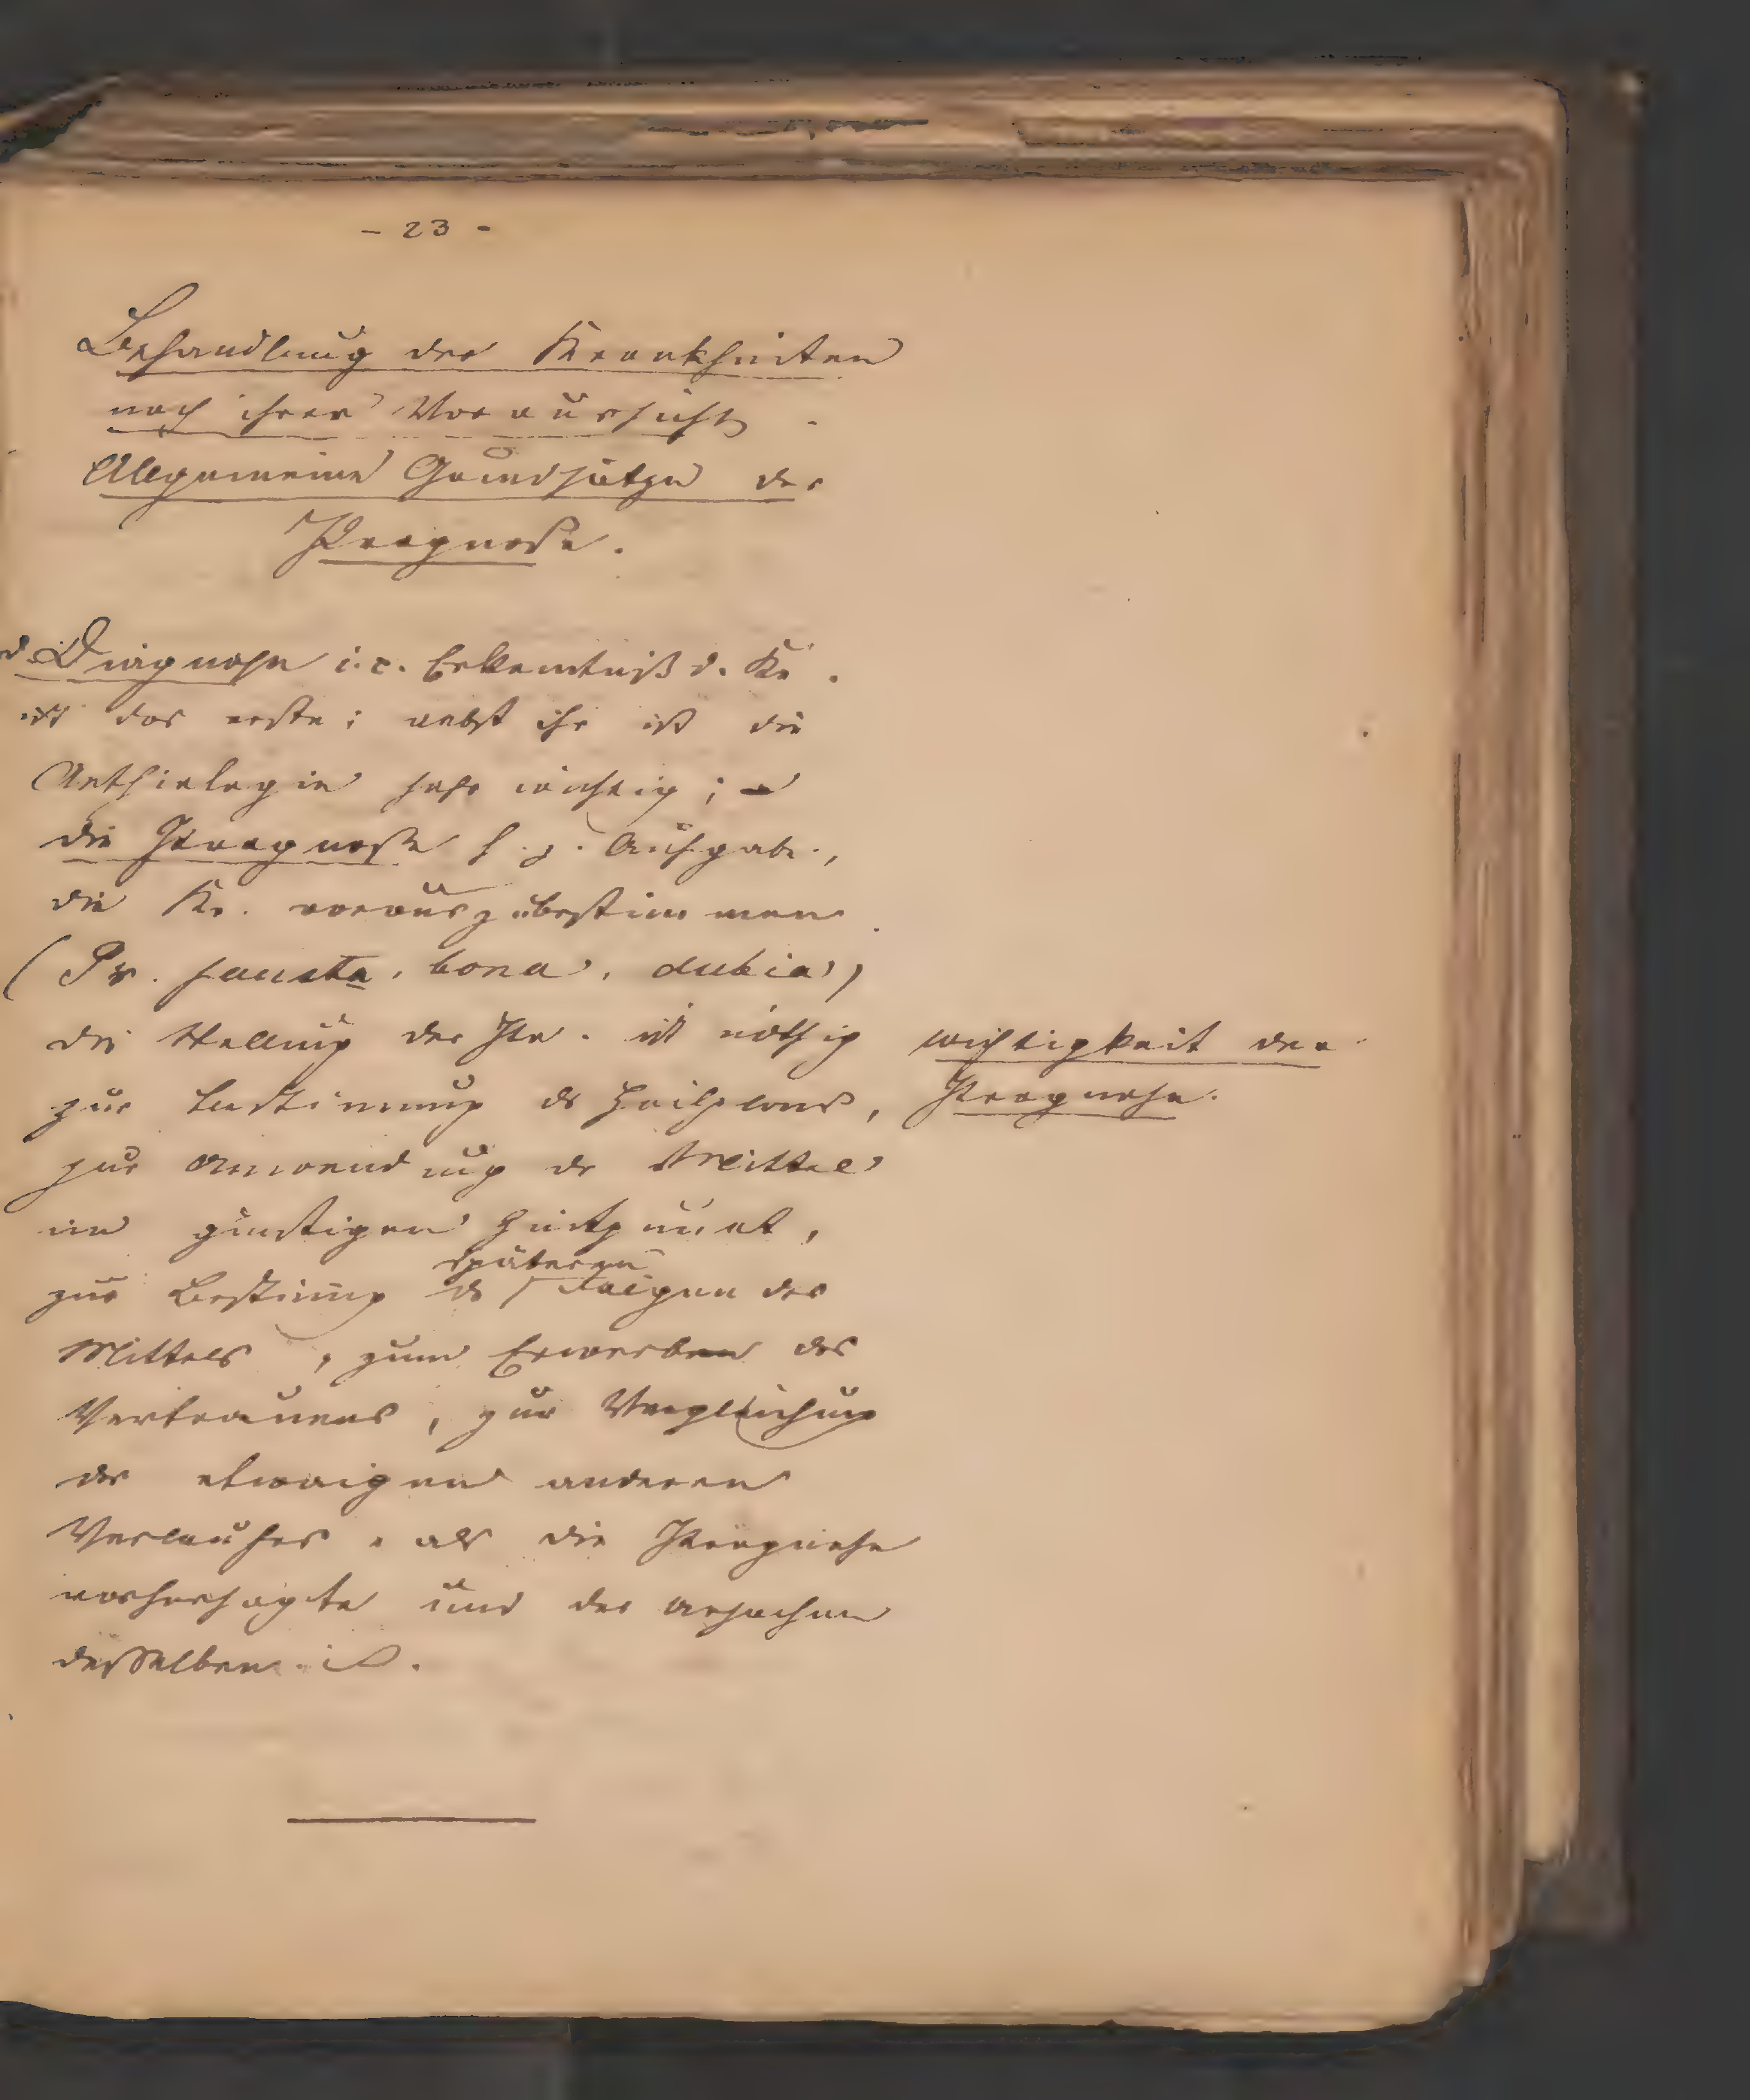 - 23 -
Behandlung der Krankheiten
nach ihrer Voraussicht.
Allgemeine Grundsätze der
Prognose.
d. Diagnose i. e. Erkenntniß d. Kr.
ist das erste; nebst ihr ist die
Aethiologie sehr wichtig;
die Prognose h. z. Aufgabe,
die Kr. vorauszubestimmen
(Pr. fausta, bona, dubia)
die Stellung der Pr. ist nöthig
wichtigkeit der
zur Bestimmung des Heilplans,
Prognose.
zur Anwendung der Mittel
im günstigen Zeitpunct,
späteren
zur Bestimung der Folgen des
Mittels, zum Erwerben des
Vertrauens, zur Vergleichung
des etwaigen anderen
Verlaufes, als die Prognose
vorhersagte und der Ursachen
desselben.